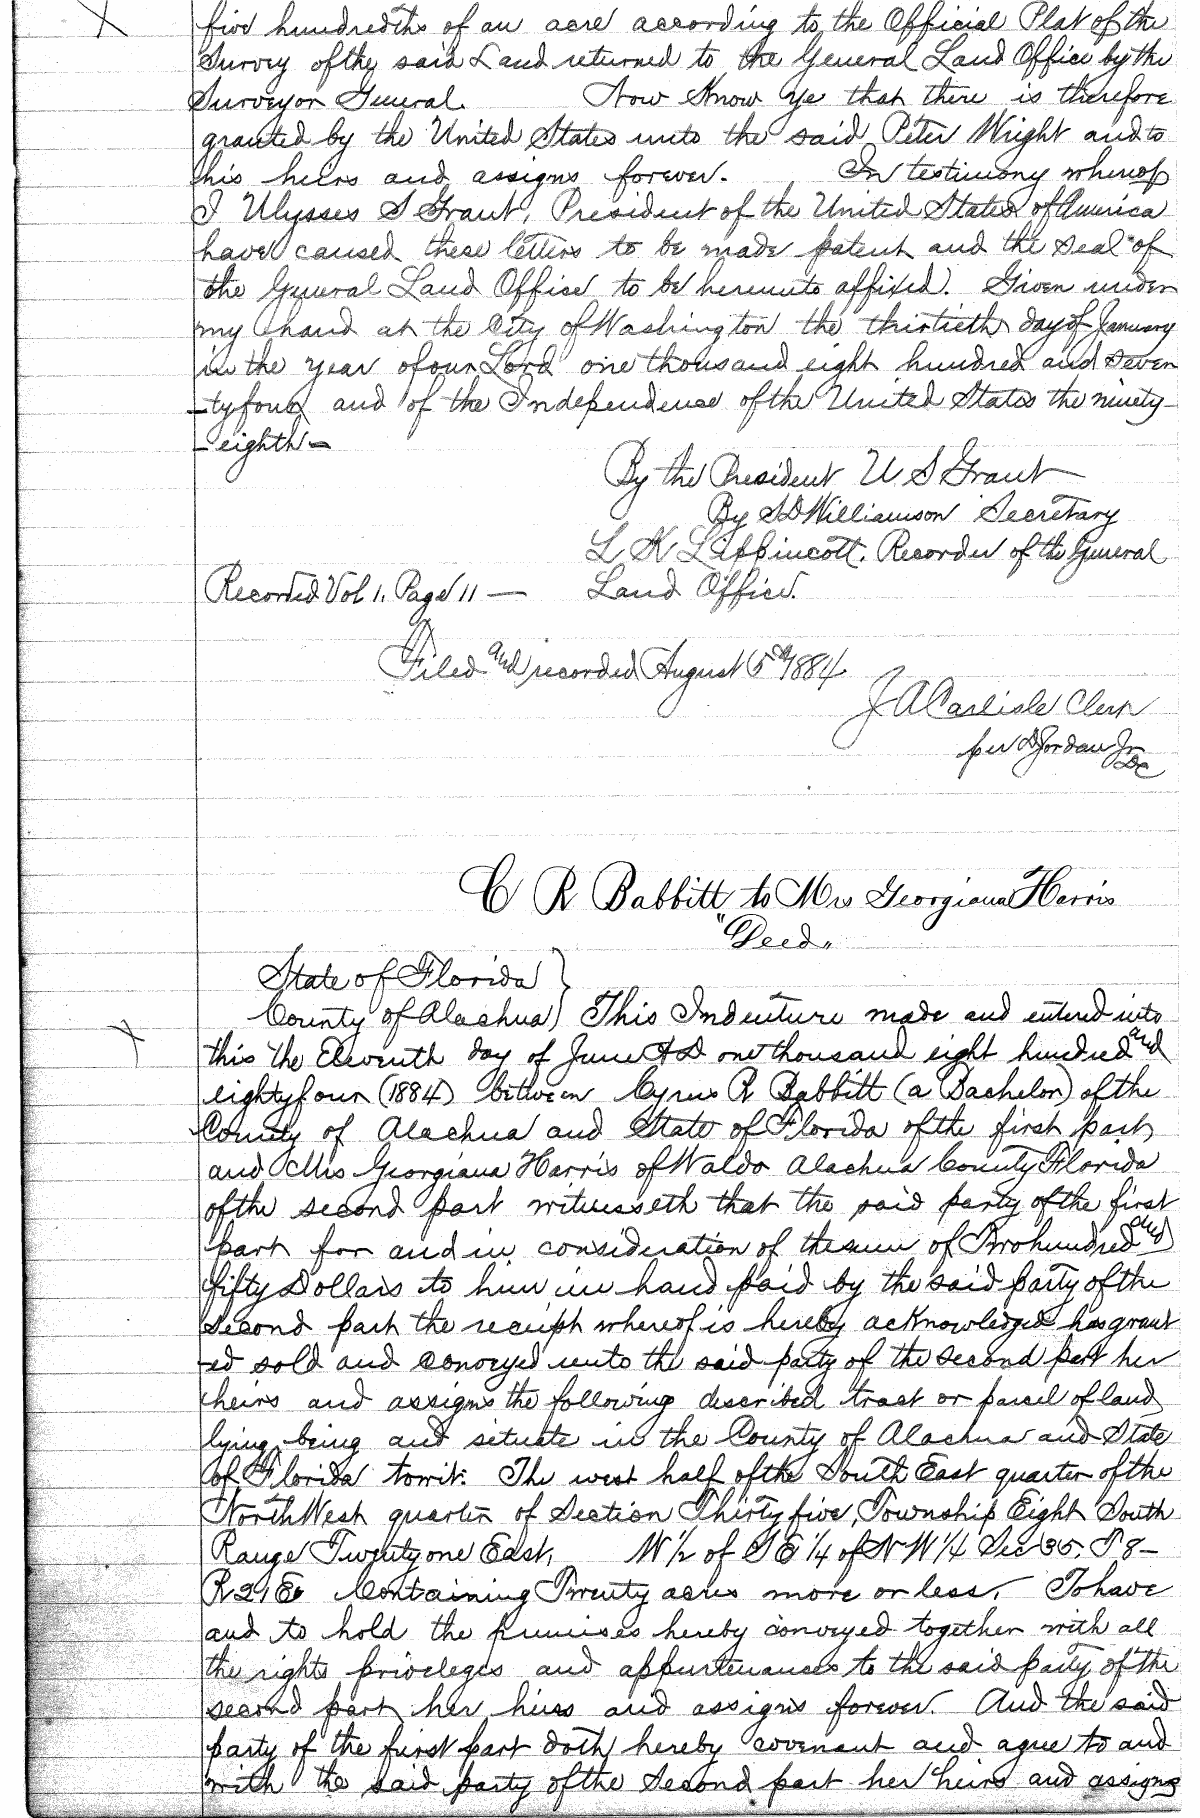 five hundredths of an acre according to the Official Plat of the
Survey of the said Land returned to the General Land Office by the
Surveyor General. Now Know Ye that there is therefore
granted by the United States unto the said Peter Wright and to
his heirs and assigns forever. In testimony whereof
I Ulysses S Grant, President of the United States of America
have caused these letters to be made patent and the seal of
the General Land Office to be hereunto affixed. Given under
my hand at the City of Washington the thirtieth day of January
in the year of our Lord one thousand eight hundred and seven
-ty four and of the Independence of the United States the ninety-
-eighth-
By the President U S Grant
By S D Williamson Secretary
L K Lippincott. Recorder of the General
Recorded Vol 1. Page 11 — Land Office.
Filed and recorded August 5th 1884
J A Carlisle Clerk
per D Jordan Jr
DC
C R Babbitt to Mrs Georgiana Harris
"Deed"
State of Florida }
County of Alachua } This Indenture made and entered into
this the Eleventh day of June A D one thousand eight hundred and
eighty four (1884) between Cyrus R Babbitt (a Bachelor) of the
County of Alachua and State of Florida of the first part
and Mrs Georgiana Harris of Waldo Alachua County Florida
of the second part witnesseth that the said party of the first
part for and in consideration of the sum of Two hundred and
fifty Dollars to him in hand paid by the said party of the
second part the receipt whereof is hereby acknowledged has grant
-ed sold and conveyed unto the said party of the second part her
heirs and assigns the following described tract or parcel of land
lying being and situate in the County of Alachua and State
of Florida towit: The west half of the South East quarter of the
North West quarter of Section Thirty five, Township Eight South
Range Twenty one East, W 1/2 of S E 1/4 of N W 1/4 Sec 35. T 8-
R 21 E Containing Twenty acres more or less. To have
and to hold the premises hereby conveyed together with all
the rights privileges and appurtenances to the said party of the
second part her heirs and assigns forever. And the said
party of the first part doth hereby covenant and agree to and
with the said party of the second part her heirs and assigns